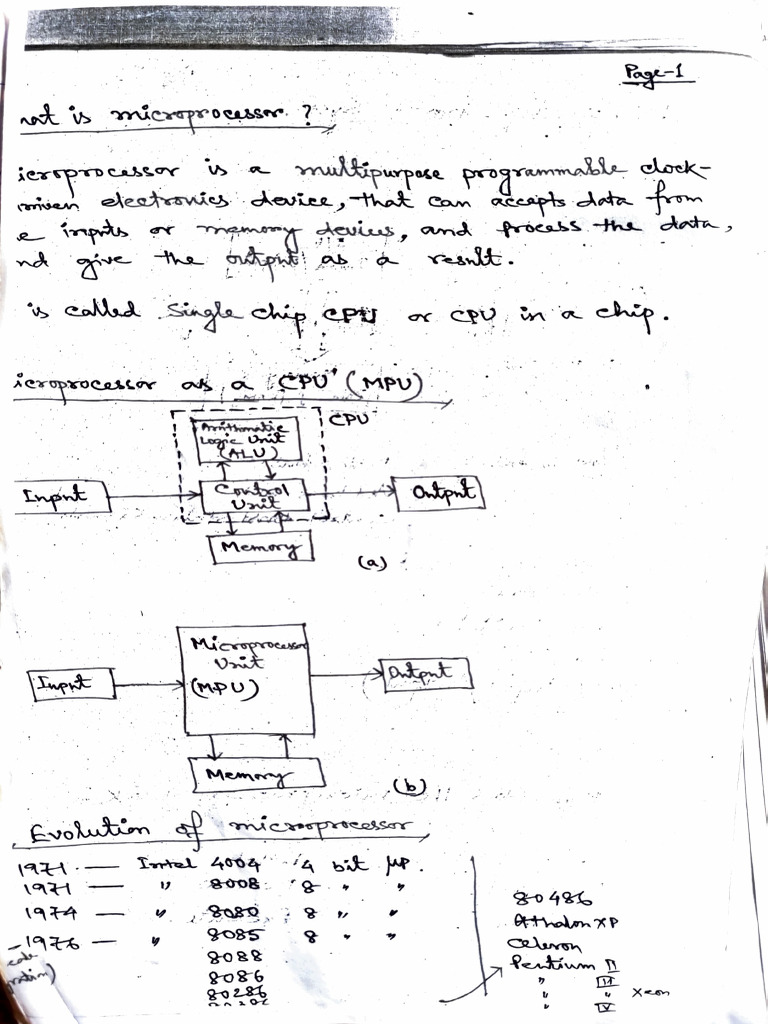 Page-1
hat is microprocessor ?
icroprocessor is a multipurpose programmable clock-
riven electronics device, that can accepts data from
e inputs or memory devices, and process the data,
nd give the output as a result.
is called single chip CPU or CPU in a chip.
icroprocessor as a CPU (MPU)
CPU
Arithmatic
Logic Unit
(ALU)
Input
Control
Unit
Output
Memory
(a)
Microprocessor
Unit
(MPU)
Input
Output
Memory
(b)
Evolution of microprocessor
1971 — Intel 4004 4 bit μp.
1971 — " 8008 8 " "
1974 — " 8080 8 " "
1976 — " 8085 8 " "
8088
8086
80286
80486
Athalon XP
Celeron
Pentium II
" III
" " Xeon
" IV